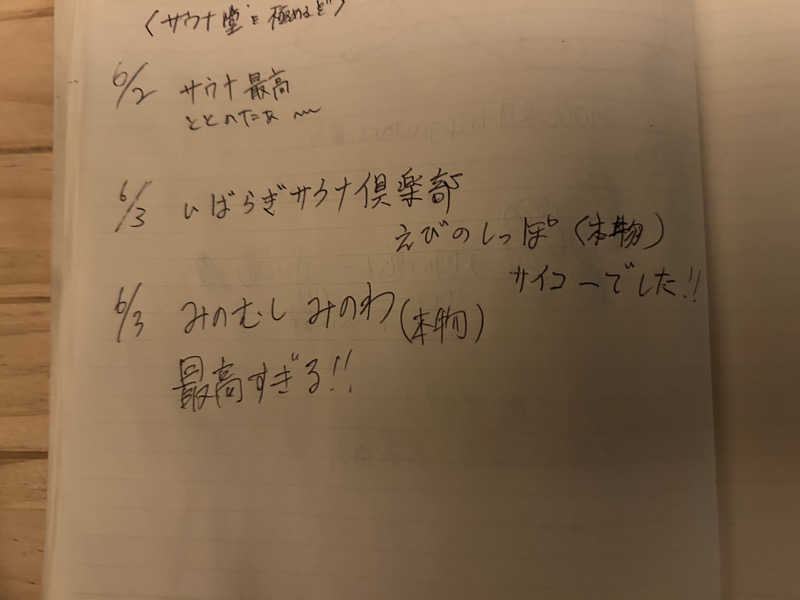 (サウナ堂を極めるぞ)
6/2 サウナ最高
ととのたな 〰
6/3 いばらぎサウナ倶楽部
えびのしっぽ(本物)
サイコーでした!!
6/3 みのむし みのわ(本物)
最高すぎる!!